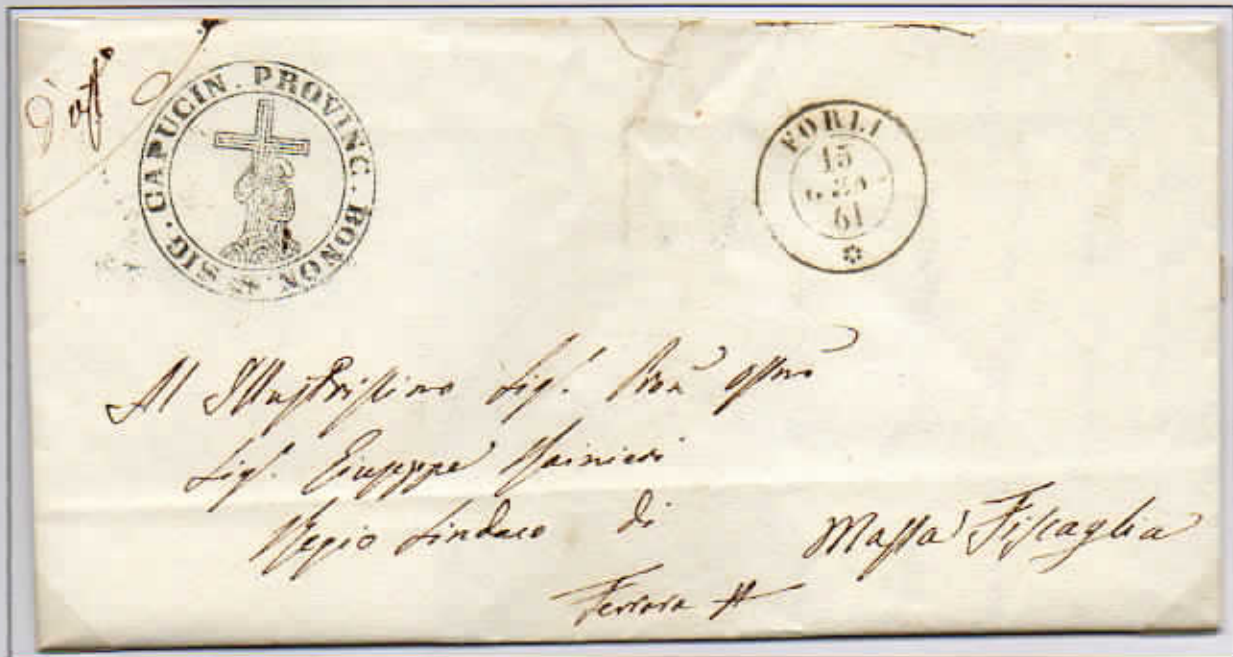 SIG. CAPUCIN. PROVINC. BONON.
FORLI
15
61
Al Illustrissimo Sig.
Sig. Giuseppe Mainieri
Regio Sindaco di
Massa Fiscaglia
Ferrara